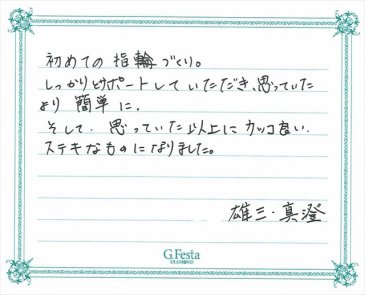 初めての指輪づくり。
しっかりとサポートしていただき、思っていた
より簡単に。
そして、思っていた以上にカッコ良い、
ステキなものになりました。
雄三・真澄
G.Festa
DIAMOND